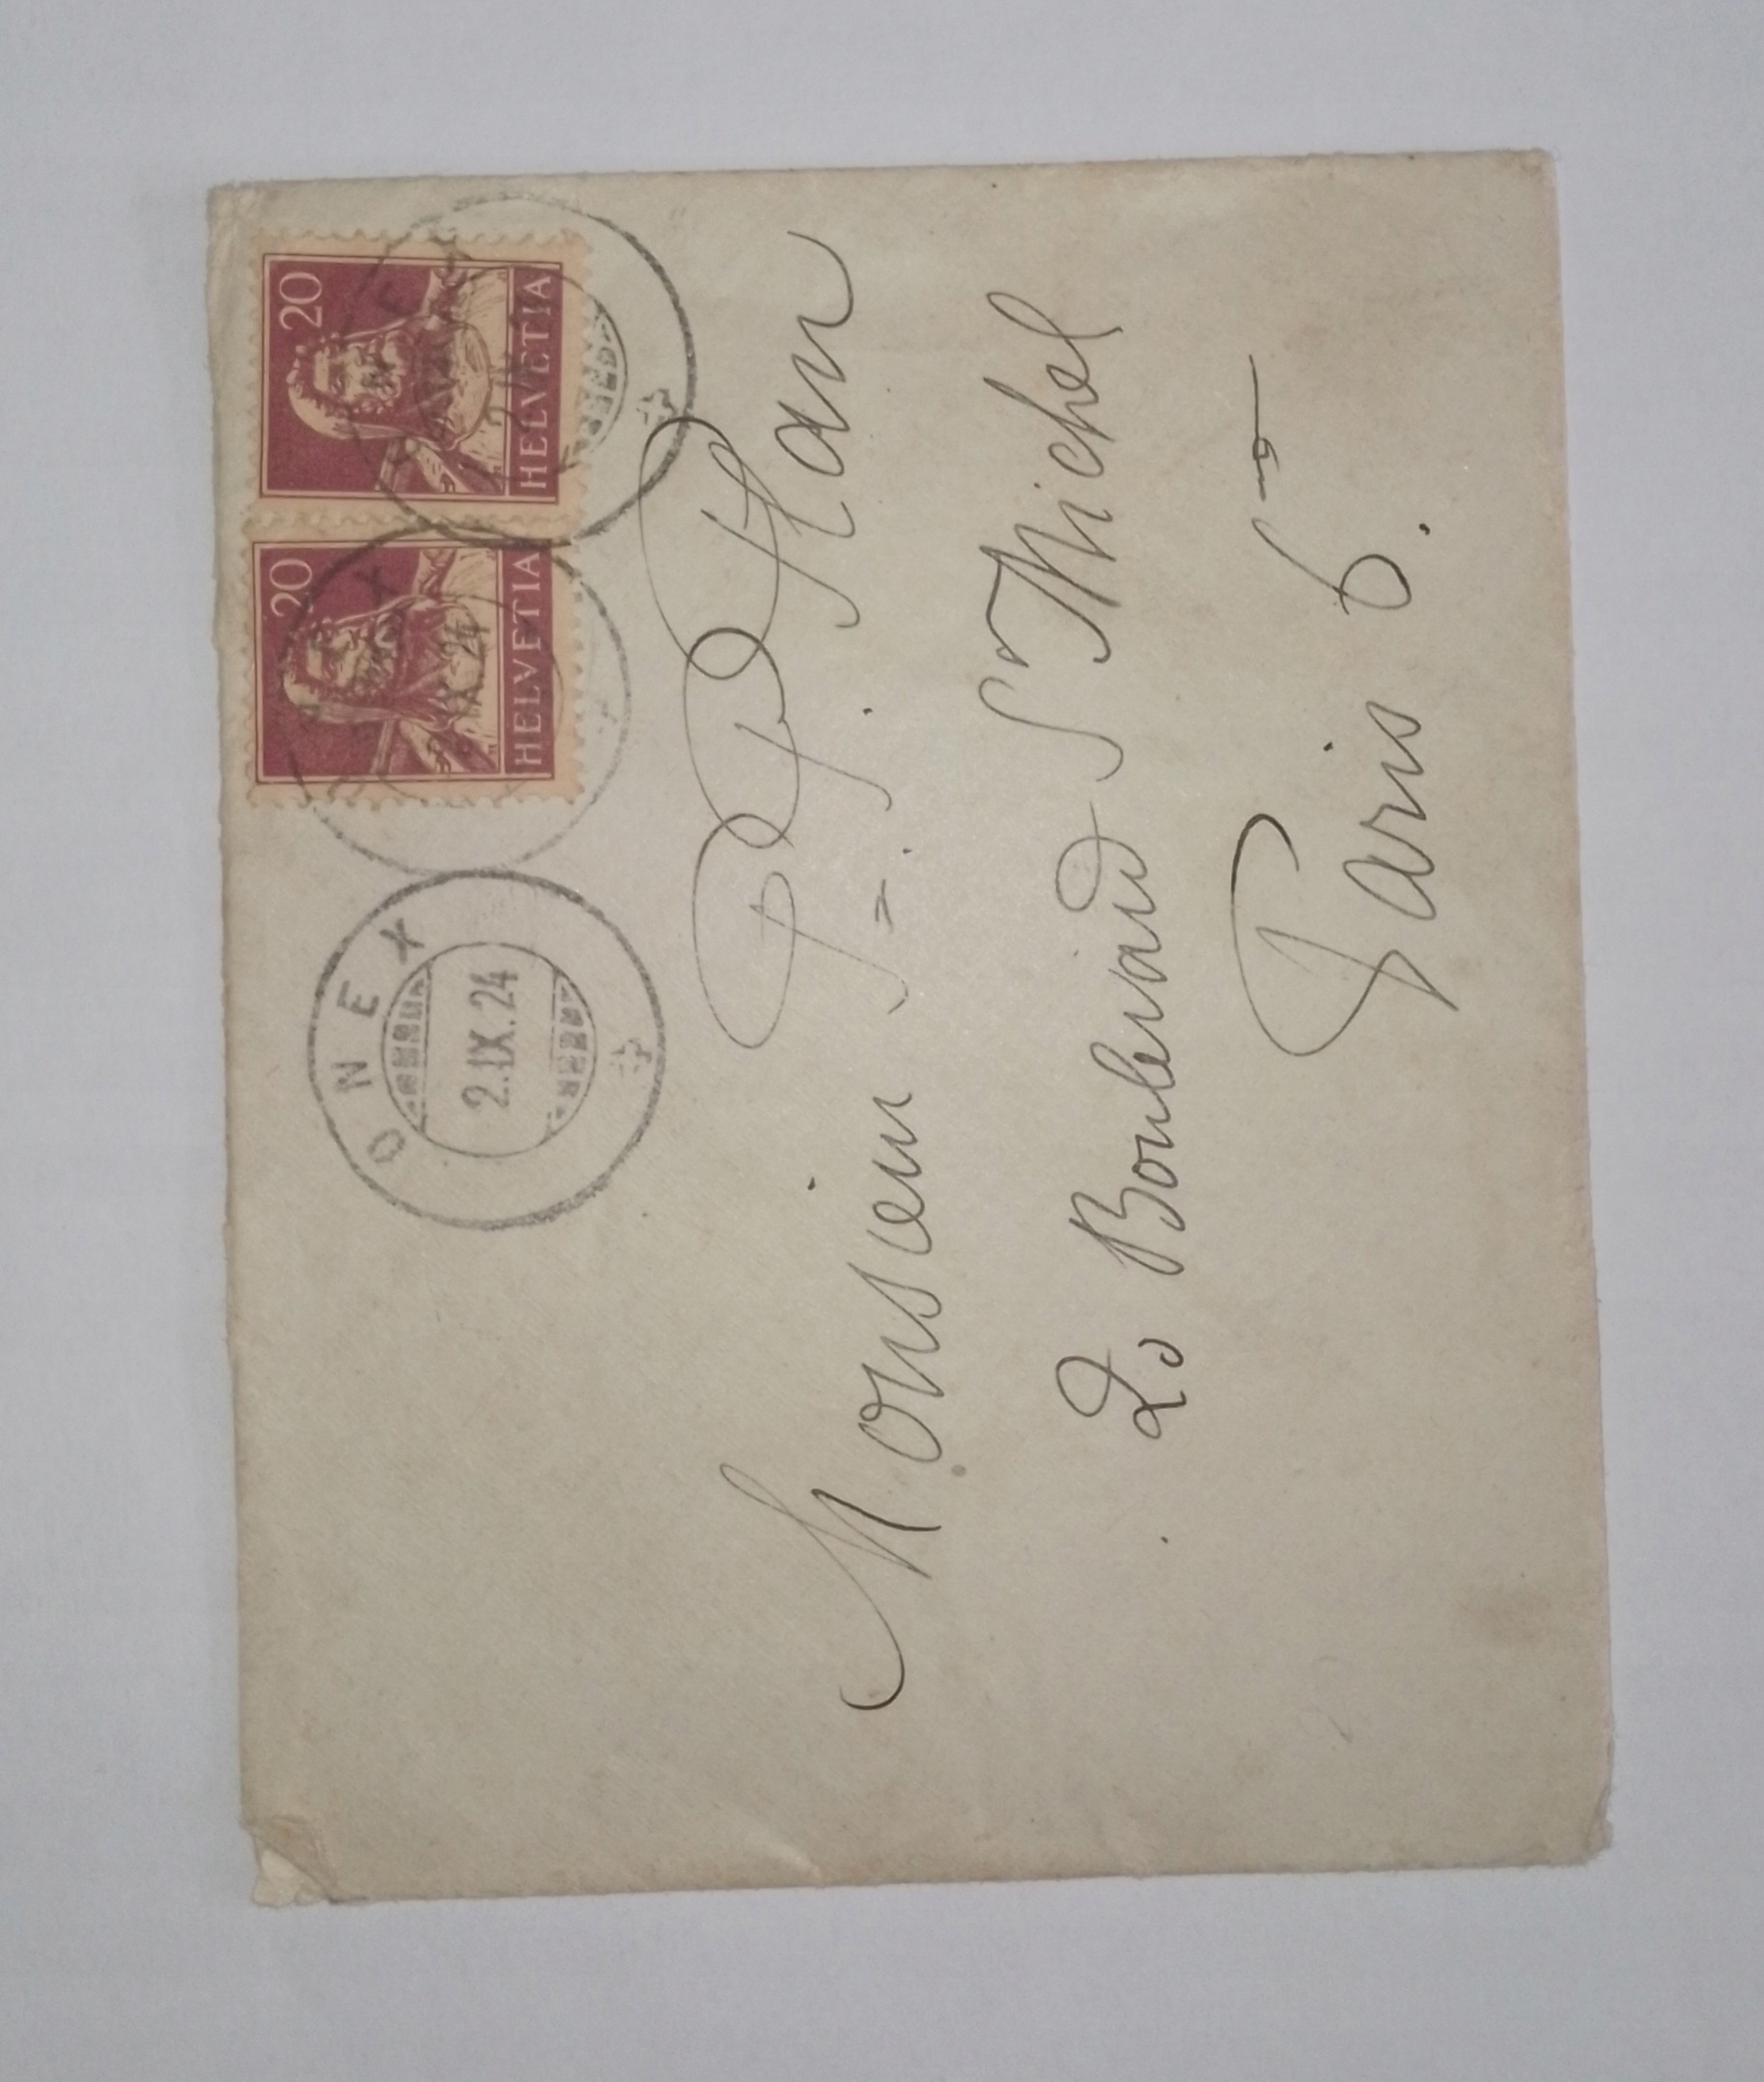 20 20
HELVETIA HELVETIA
ONEX
2.IX.24
Monsieur P.=P. Plan
20 Boulevard St Michel
Paris 6.